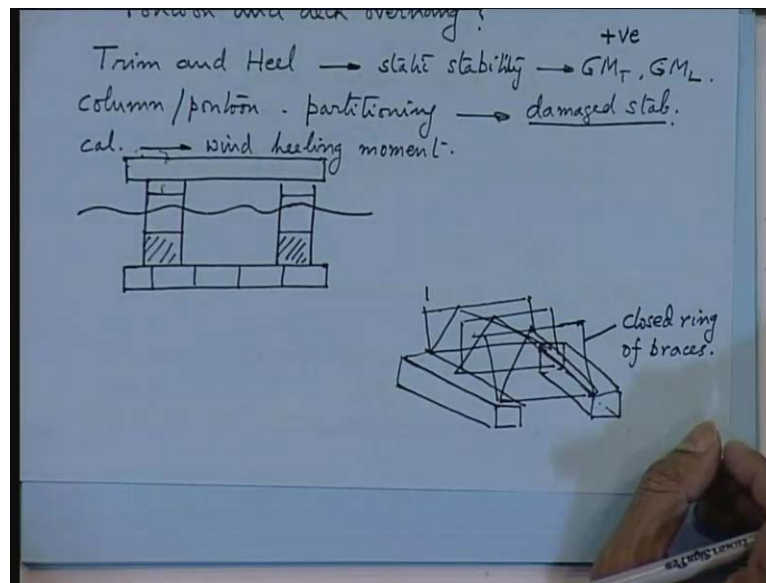 Pontoon and deck overhang?
+ve
Trim and Heel → static stability → GM_T, GM_L.
column/pontoon. partitioning → damaged stab.
cal. → wind heeling moment.
closed ring
of braces.